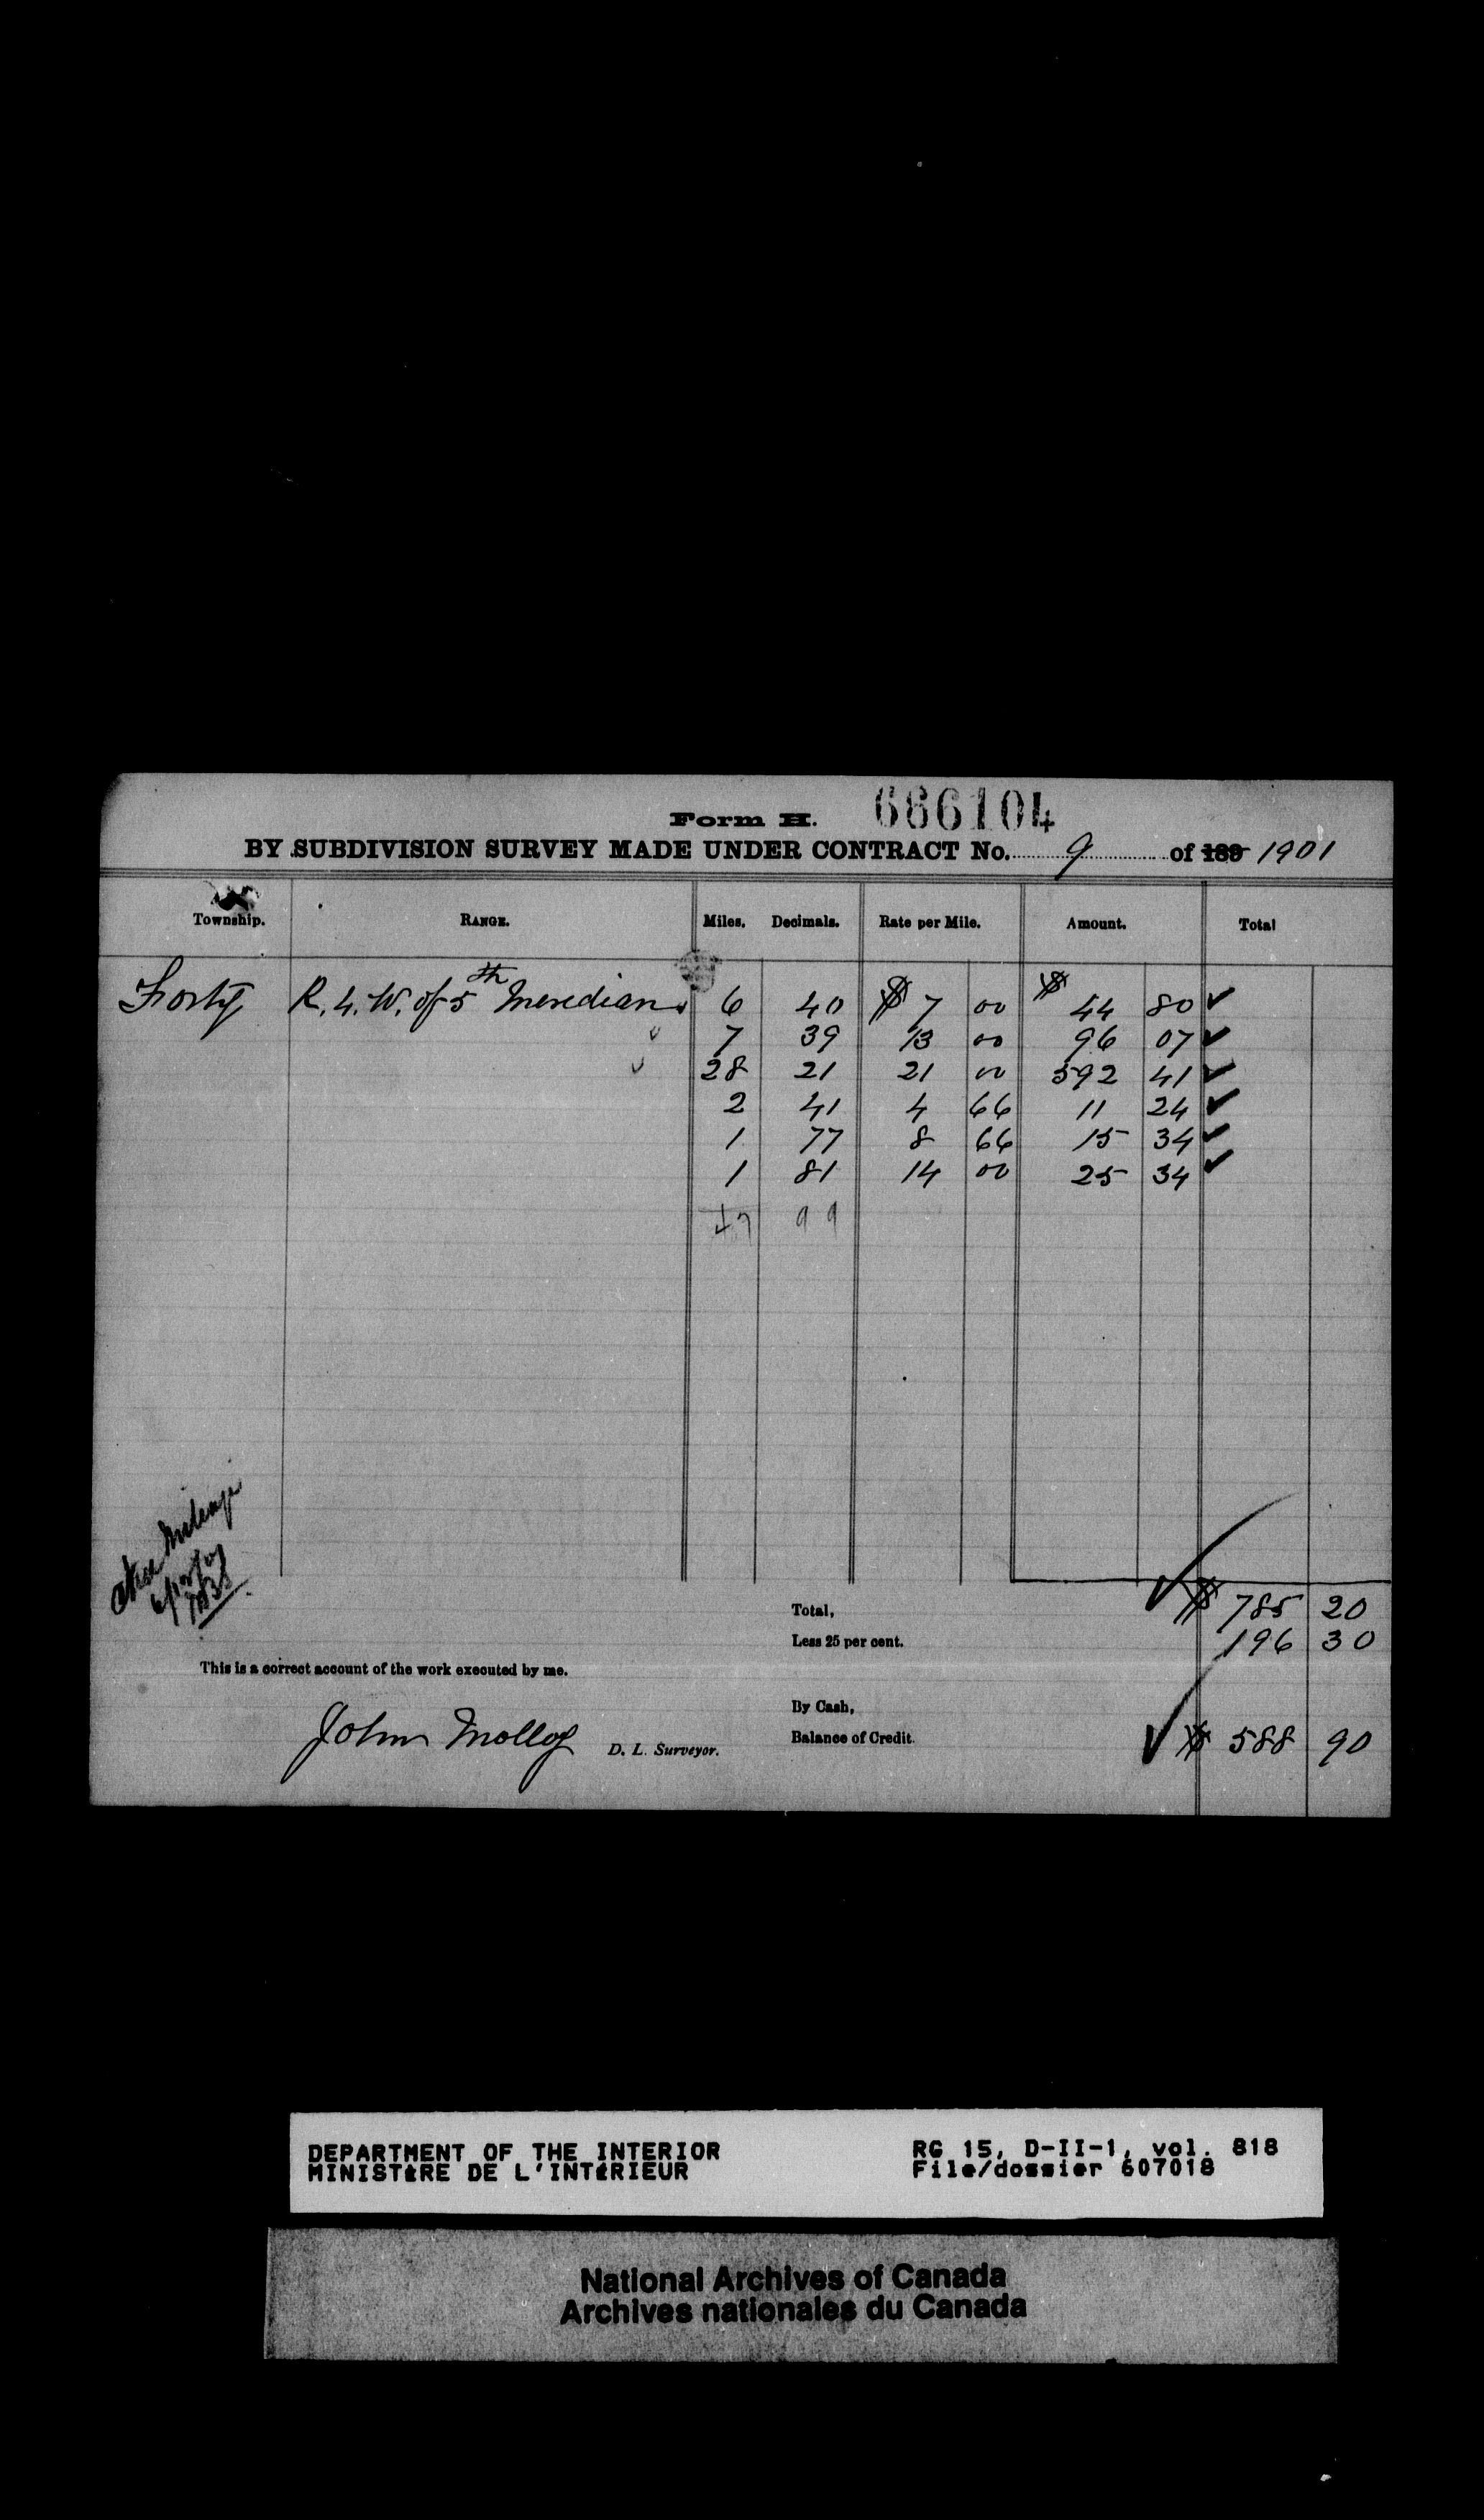 Form H. 686104
BY SUBDIVISION SURVEY MADE UNDER CONTRACT No. 9 of 189 1901
Township. RANGE. Miles. Decimals. Rate per Mile. Amount. Total
Forty R. 4. W. of 5th Meridian 6 40 $ 7 00 $ 44 80 ✓
7 39 13 00 96 07 ✓
28 21 21 00 592 41 ✓
2 41 4 66 11 24 ✓
1 77 8 66 15 34 ✓
1 81 14 00 25 34 ✓
47 99
Mileage
Total, $ 785 20
Less 25 per cent. 196 30
This is a correct account of the work executed by me.
By Cash,
John Molloy D. L. Surveyor. Balance of Credit. $ 588 90
DEPARTMENT OF THE INTERIOR RG 15, D-II-1, vol. 818
MINISTÈRE DE L'INTÉRIEUR File/dossier 607018
National Archives of Canada
Archives nationales du Canada